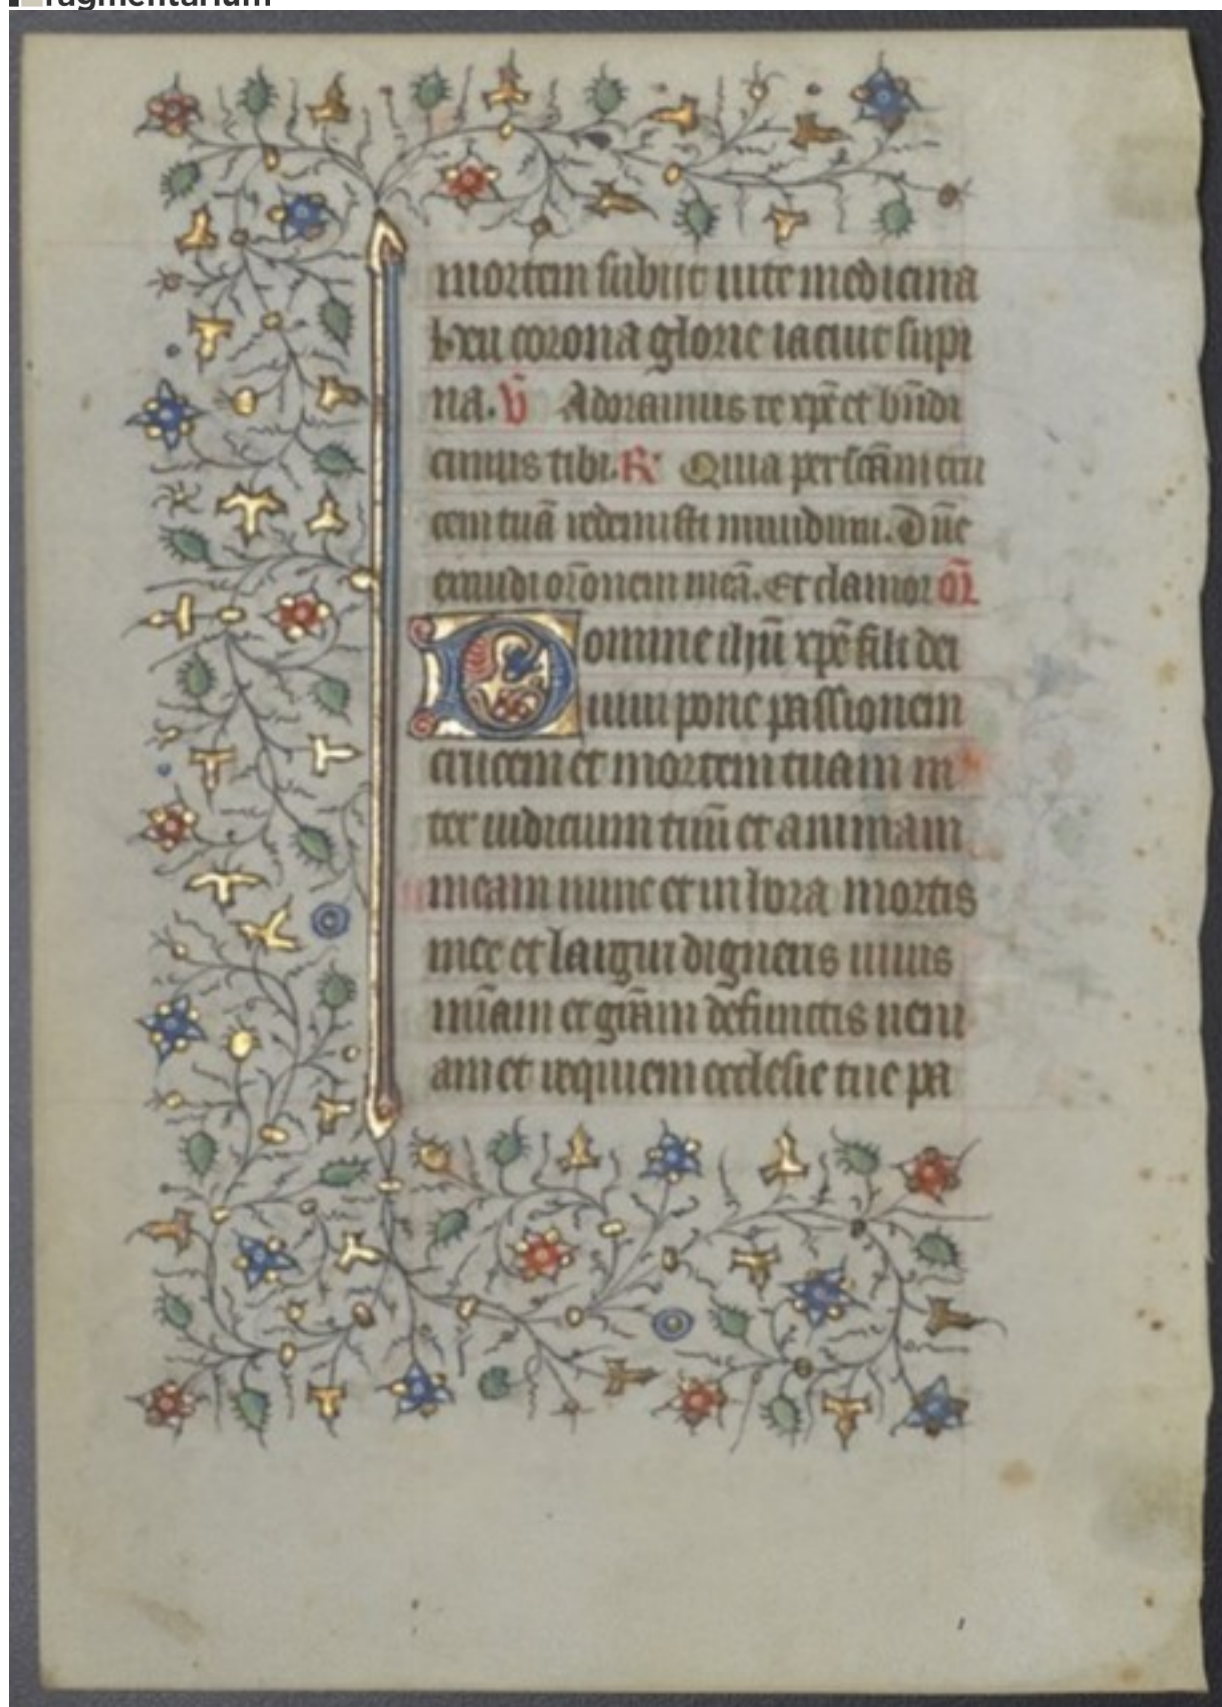 ragmentarium
mortem subijt uite medicina
hxu corona glorie iacuit supi
na. v̄ Adoramus te xp̄e et bn̄di
cimus tibi. R̄ Quia per sc̄am cru
cem tuā redemisti mundum. Dn̄e
exaudi or̄onem meā. Et clamor or̄
Domine ihū xp̄e fili dei
uiui pone passionem
crucem et mortem tuam in
ter iudicium tuū et animam
meam nunc et in hora mortis
mee et largiri digneris uiuis
mīam et grām defunctis ueni
am et requiem ecclesie tue pa